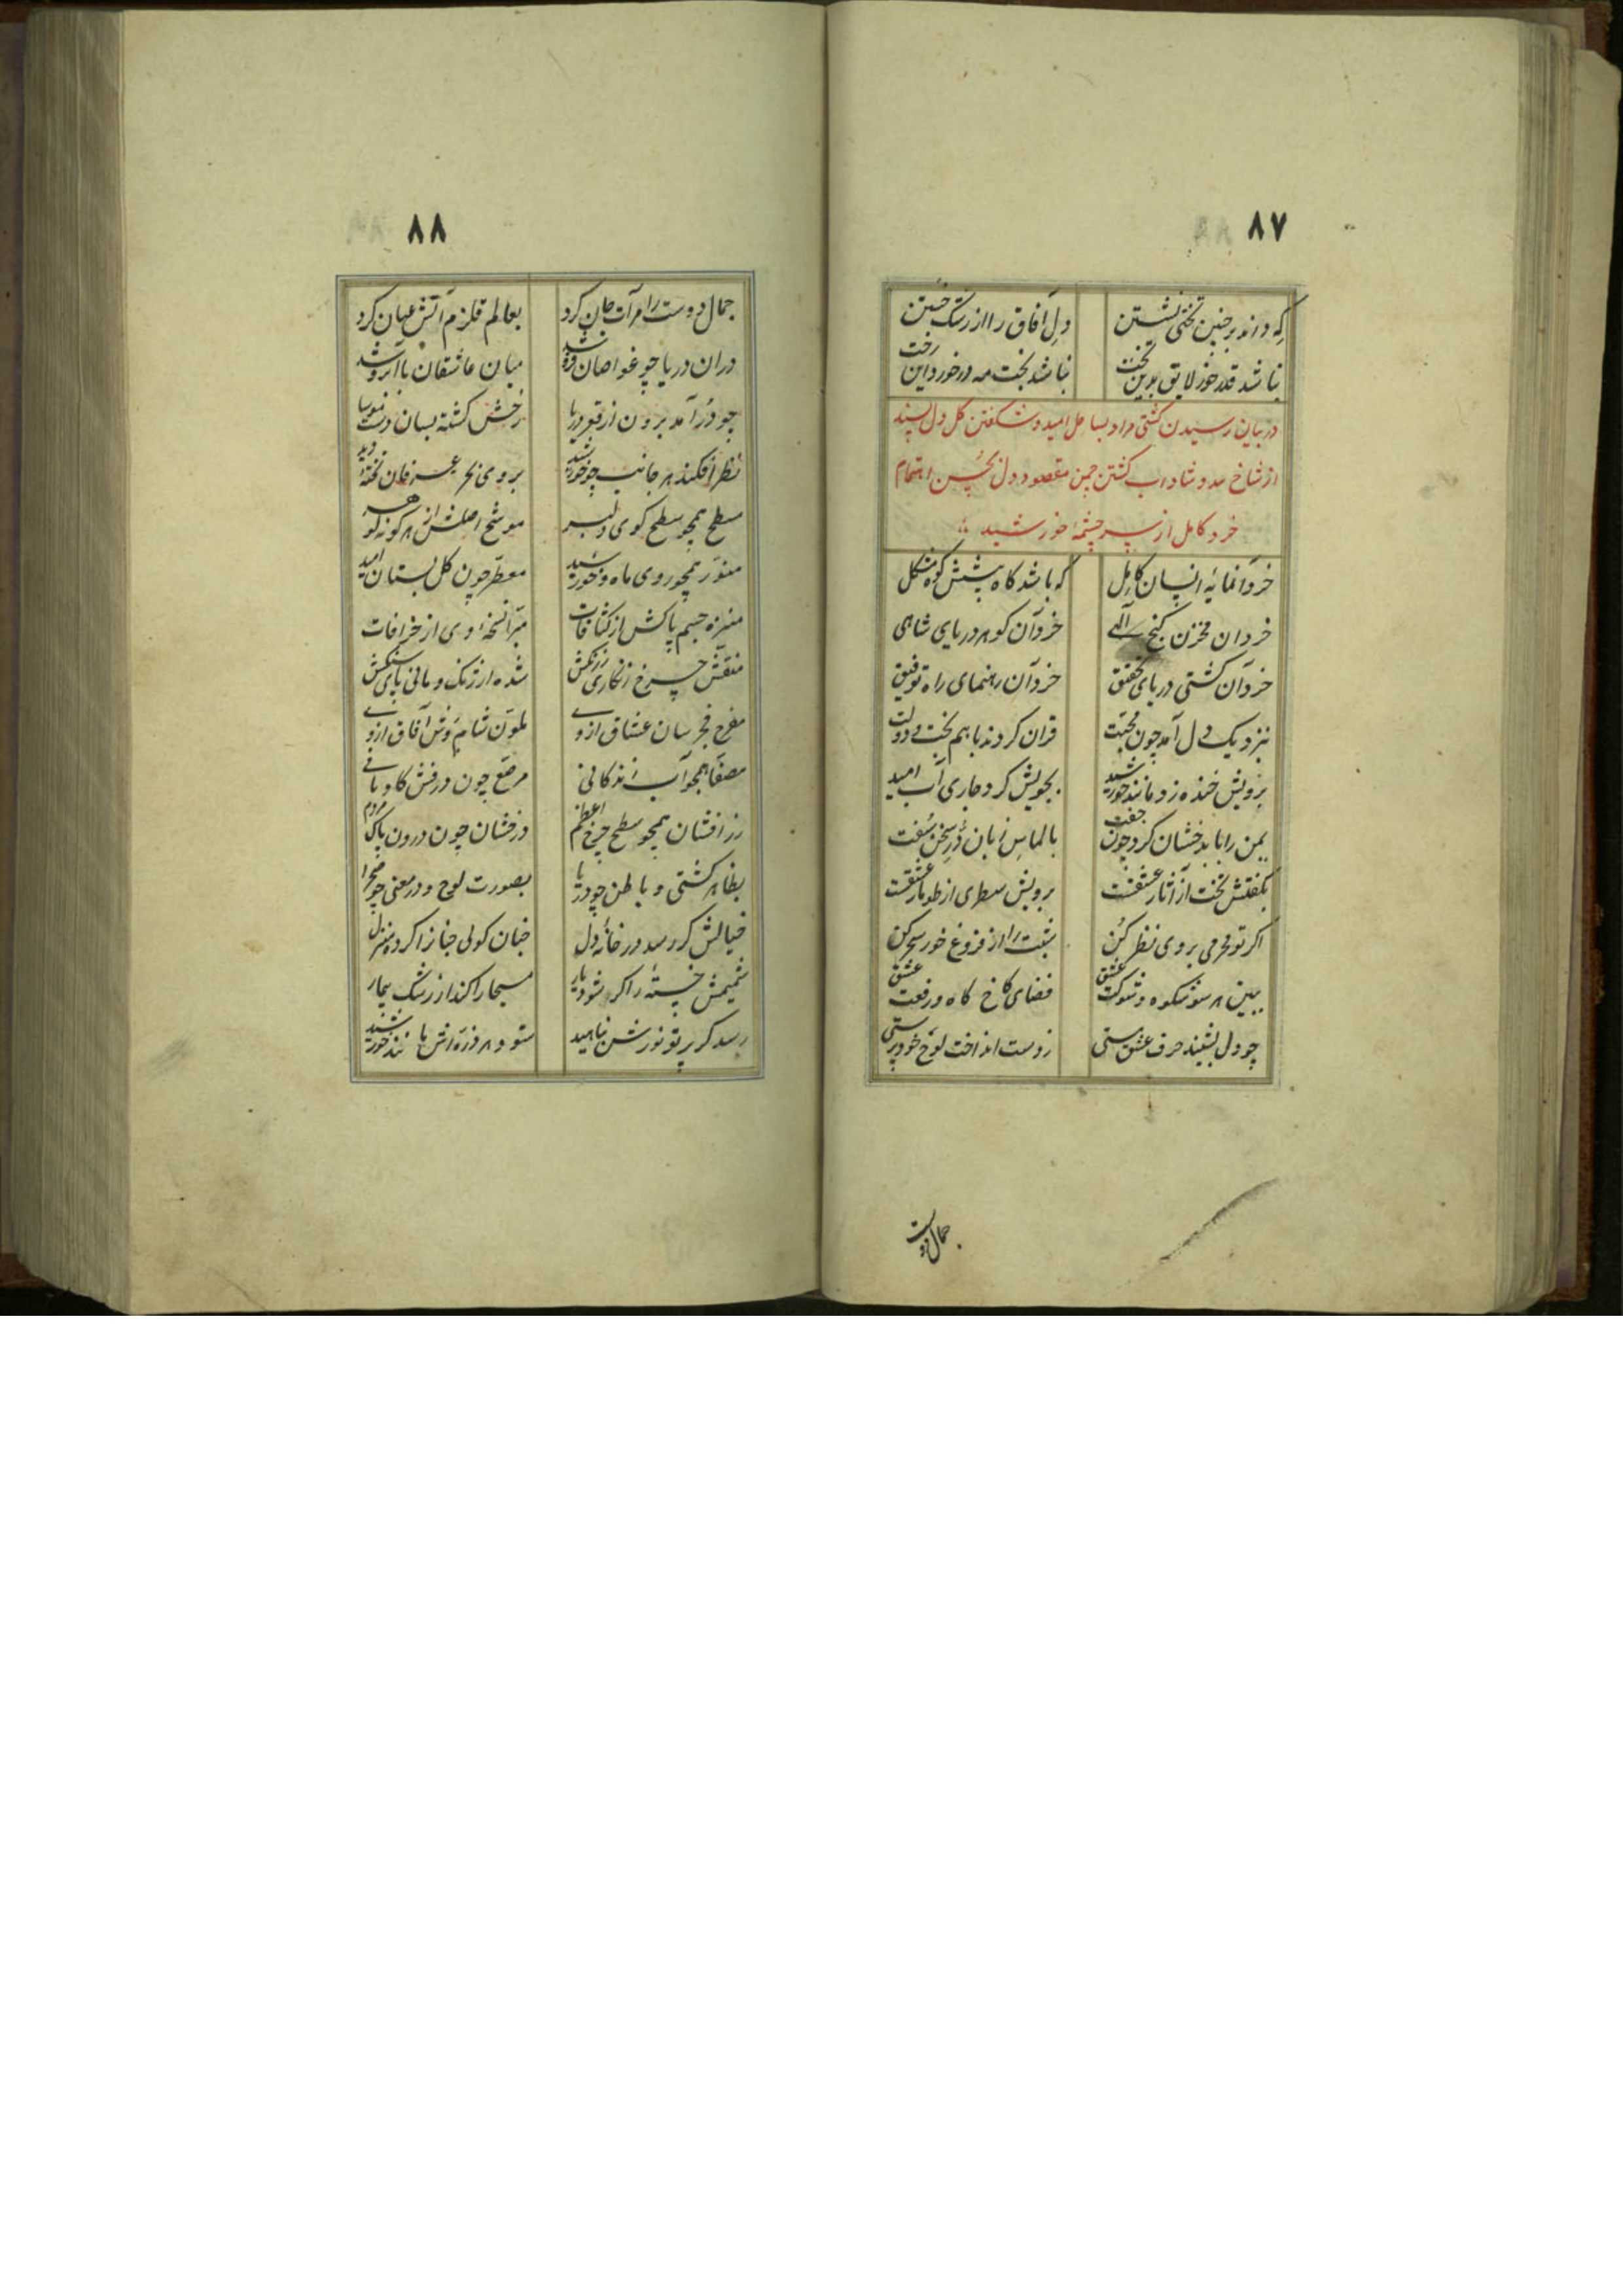 ۸۷
که داند بر چنین تختی نشستن دل آفاق را از رشک خستن
نباشد قدر خور لایق بدین تخت نباشد بخت مه در خورد این رخت
در بیان رسیدن کشتی مراد بساحل امید و شکفتن کل دل پسند
از شاخ مدد و شاداب کشتن چمن مقصود دل بحسن اهتمام
خرد کامل از سرچشمهٔ خورشید
خرد آنمایهٔ انسان کامل که باشد کاه پیشش کوه مشکل
خرد ان مخزن کنج آلهی خرد آن کوهر دریای شاهی
خرد آن کشتی دریای تحقیق خرد آن رهنمای راه توفیق
بنزدیک دل آمد چون محبت قران کردند باهم بخت و دولت
برویش خنده زد مانند خورشید بجویش کرد جاری آب امید
یمن را با بدخشان کرد چون جفت بالماس زبان دُرّ سخن سُفت
بکفتش تخت از آثار عشقست برویش سطری از طومار عشقست
اکر تو محرمی بروی نظر کُن شبت را از فروغ خور سحر کن
ببین هر سو شکوه و شوکت عشق فضای کاخ کاه و رفعت عشق
چو دل بشنید حرف عشق مستی ز دست انداخت لوح خود پرستی
جمال دوست
۸۸
جمال دوست را مرآت جان کرد بعالم قلزم آتش عیان کرد
دران دریا چو غواصان فرو شد میان عاشقان با آبرو شد
چو دُر آمد برون از قعر دریا رخش کشته بسان دست موسا
نظر افکند هر جانب چو خورشید بروی بحر عرفان تختهٔ دید
مسطح همچو سطح کوی دلبر موشح اصلش از هر کونه کوهر
منور همچو روی ماه و خورشید معطر چون کل بستان امید
منزه جسم پاکش از کثافات مبرا نسخهٔ وی از خرافات
منقش چرخ زنکاری ز رنکش شده ارژنک و مانی پای سنکش
مفرح فجر سان عشاق ازوی ملون شام وش آفاق ازوی
مصفا همچو آب زندکانی مرصع چون درفش کاویانی
زرافشان همچو سطح چرخ اعظم درخشان چون درون پاک مردم
بظاهر کشتی و باطن چو دریا بصورت لوح و در معنی چو صحرا
خیالش کر رسد در خانهٔ دل جنان کوئی جنانرا کرده منزل
شمیمش خستهٔ را کر شود یار مسیحا را کند از رشک بیمار
رسد کر پرتو نورش بناهید شود هر ذره اش مانند خورشید